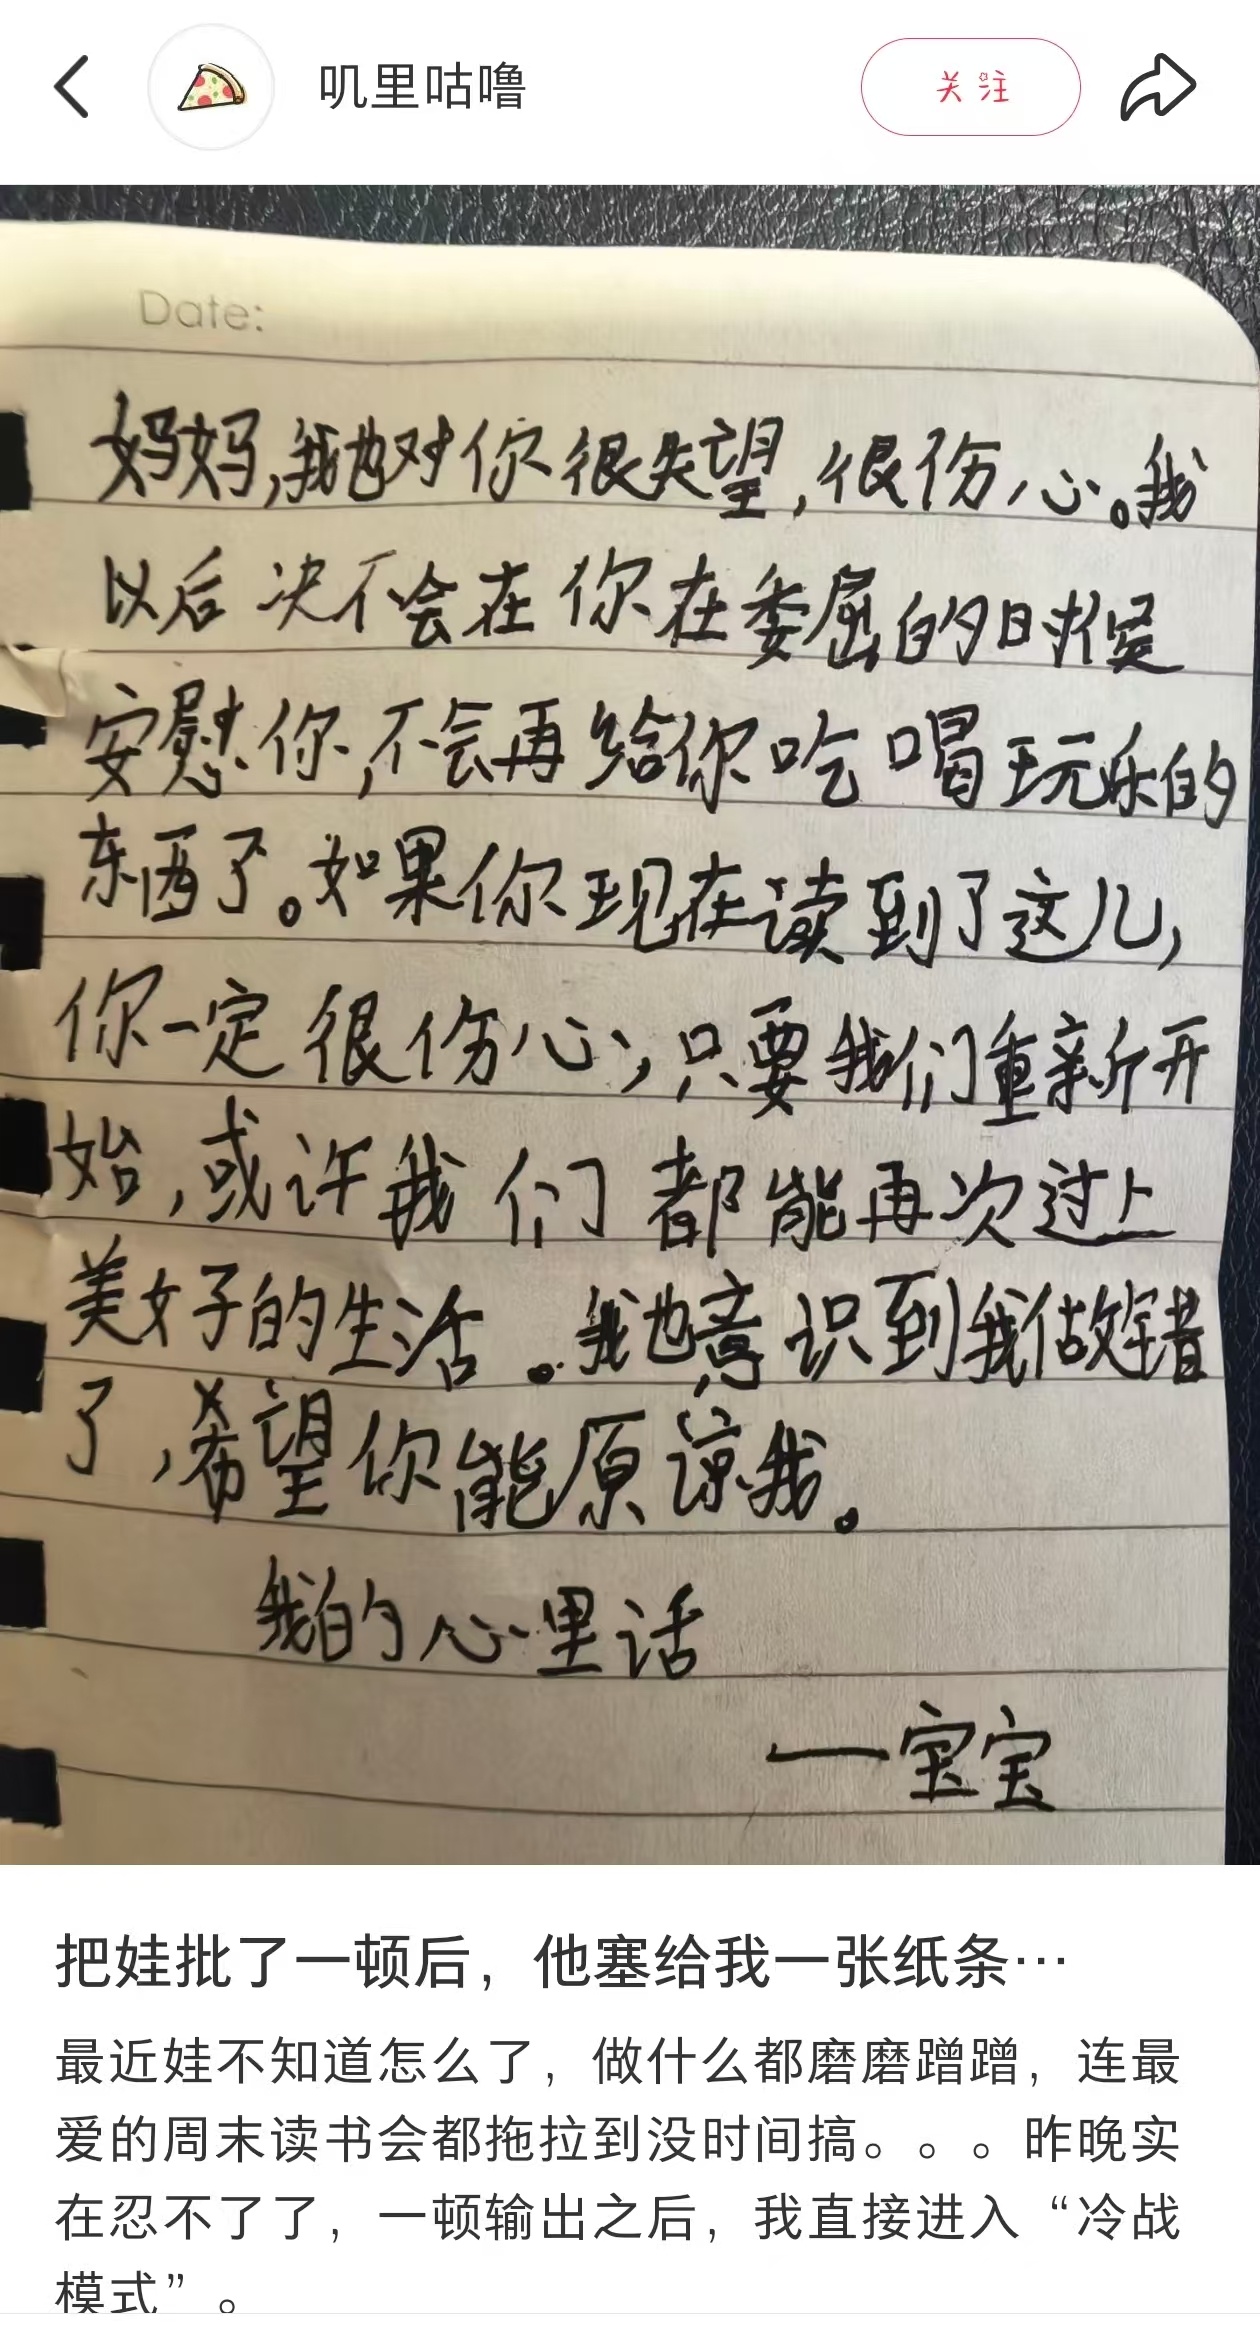 叽里咕噜
关注
Date:
妈妈,我也对你很失望,很伤心。我
以后决不会在你在委屈的时候
安慰你,不会再给你吃喝玩乐的
东西了。如果你现在读到了这儿,
你一定很伤心,只要我们重新开
始,或许我们都能再次过上
美好的生活。我也意识到我做错
了,希望你能原谅我。
我的心里话
一宝宝
把娃批了一顿后，他塞给我一张纸条…
最近娃不知道怎么了，做什么都磨磨蹭蹭，连最
爱的周末读书会都拖拉到没时间搞。。。昨晚实
在忍不了了，一顿输出之后，我直接进入“冷战
模式”。